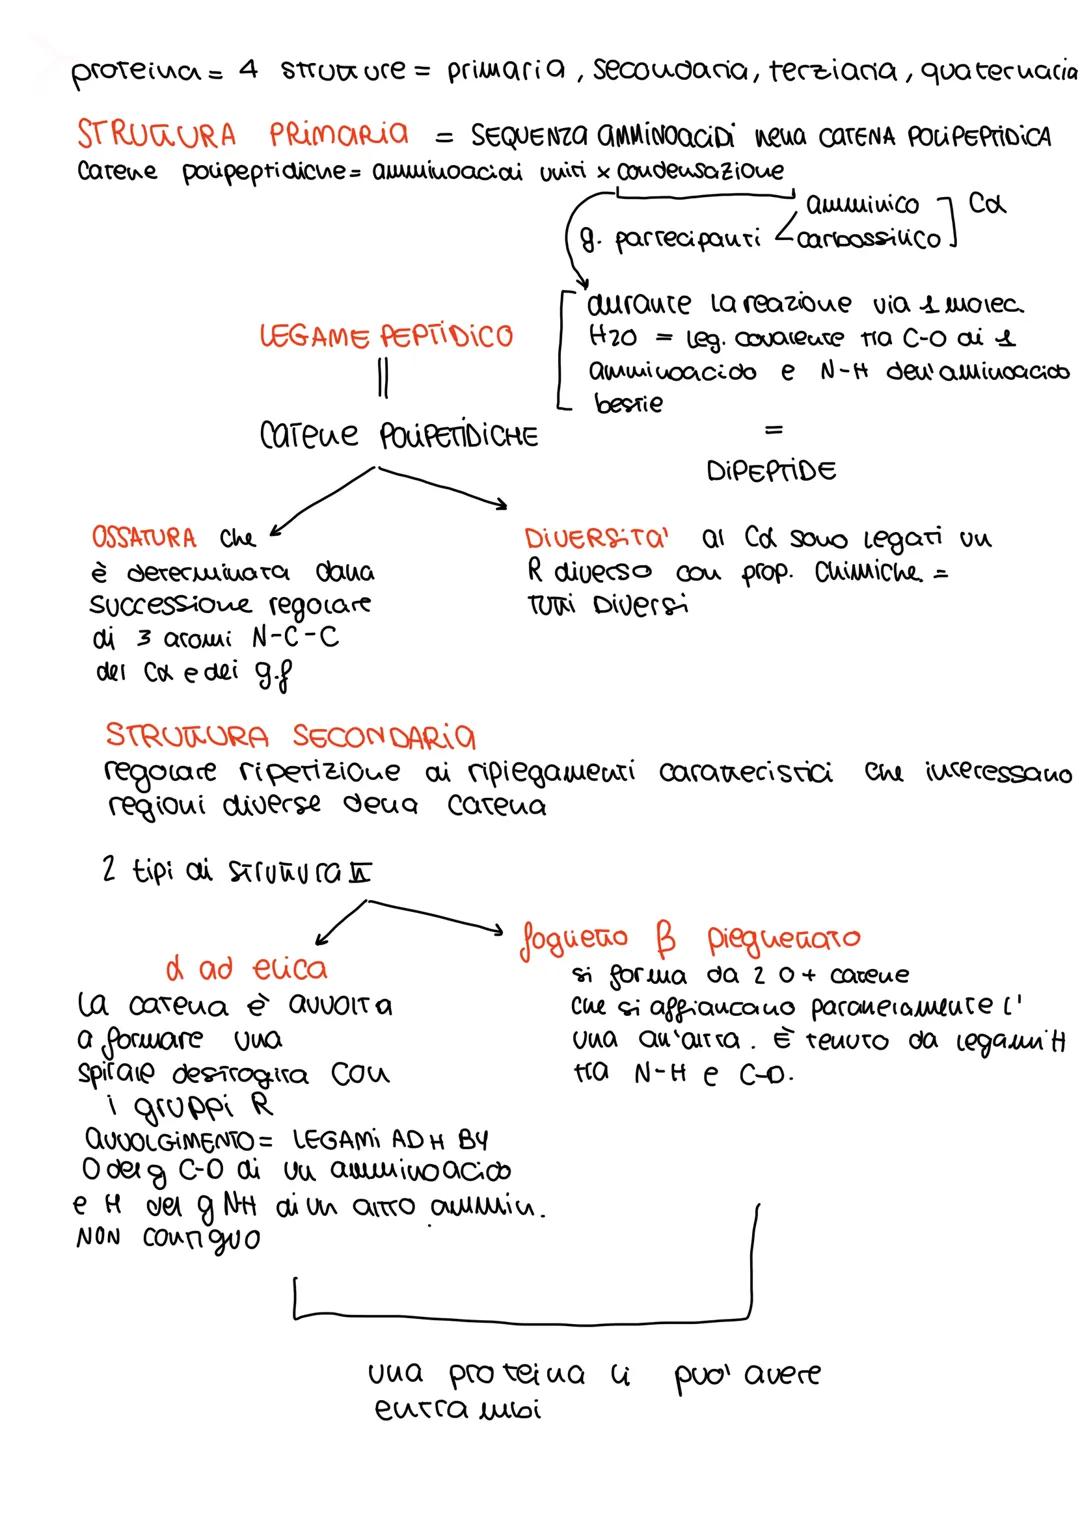 proteina = 4 strutture = primaria, secondaria, terziaria, quaternaria
STRUTTURA PRIMARIA = SEQUENZA AMMINOACIDI nella CATENA POLIPEPTIDICA
Catene polipeptidiche = amminoacidi uniti x condensazione
g. partecipanti
amminico
carbossilico
Cα
durante la reazione via 1 molec.
H2O = leg. covalente tra C-O di 1
amminoacido e N-H dell'amminoacido
bestie
=
DIPEPTIDE
LEGAME PEPTIDICO
||
Catene POLIPETIDICHE
OSSATURA che
è determinata dalla
successione regolare
di 3 atomi N-C-C
del Cα e dei g.f
DIVERSITA' al Cα sono legati un
R diverso con prop. Chimiche =
TUTTI Diversi
STRUTTURA SECONDARIA
regolare ripetizione di ripiegamenti caratteristici che interessano
regioni diverse della catena
2 tipi di struttura II
α ad elica
La catena è avvolta
a formare una
spirale destrogira con
i gruppi R
AVVOLGIMENTO = LEGAMI AD H BY
O del g C-O di un amminoacido
e H del g NH di un altro ammin.
NON contiguo
foglietto β pieghettato
si forma da 2 o + catene
che si affiancano parallelamente l'
una all'altra. È tenuto da legami H
tra N-H e C-O.
una proteina li puo' avere
entrambi